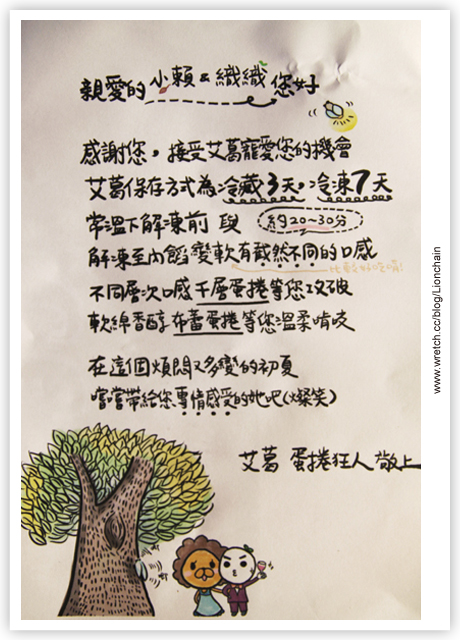 親愛的 小賴 & 織織 您好
感謝您，接受艾葛寵愛您的機會
艾葛保存方式為冷藏3天，冷凍7天
常溫下解凍前段 約20~30分
解凍至內餡變軟有截然不同的口感
比較好吃唷!
不同層次口感千層蛋捲等您攻破
軟綿香醇布蕾蛋捲等您溫柔啃咬
在這個煩悶又多變的初夏
嚐嚐帶給您專情感受的她吧(燦笑)
艾葛 蛋捲狂人 敬上
www.wretch.cc/blog/Lionchain